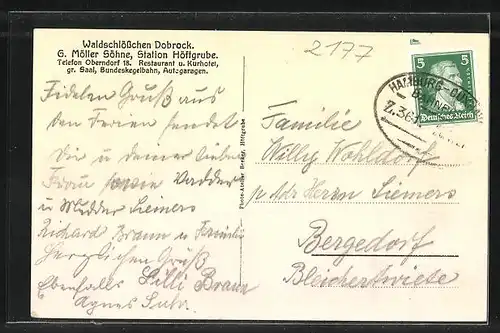 Waldschlößchen Dobrock.
G. Möller Söhne, Station Höftgrube.
Telefon Oberndorf 18. Restaurant u. Kurhotel,
gr. Saal, Bundeskegelbahn, Autogaragen.
2177
Fidelen Gruß aus
den Ferien sendet
Dir u deiner lieben
Frau sowie Vadder
u Mudder Siemers
Richard Braun u Familie
Herzlichen Gruß
Ebenfalls Lilli Braun
Agnes
Photo-Atelier Höftgrube
5 5
Deutsches Reich
HAMBURG-
BAHNPOST
Z.36
Familie
Willy Wohldorf
p Adr Herrn Siemers
Bergedorf
Bleichertwiete